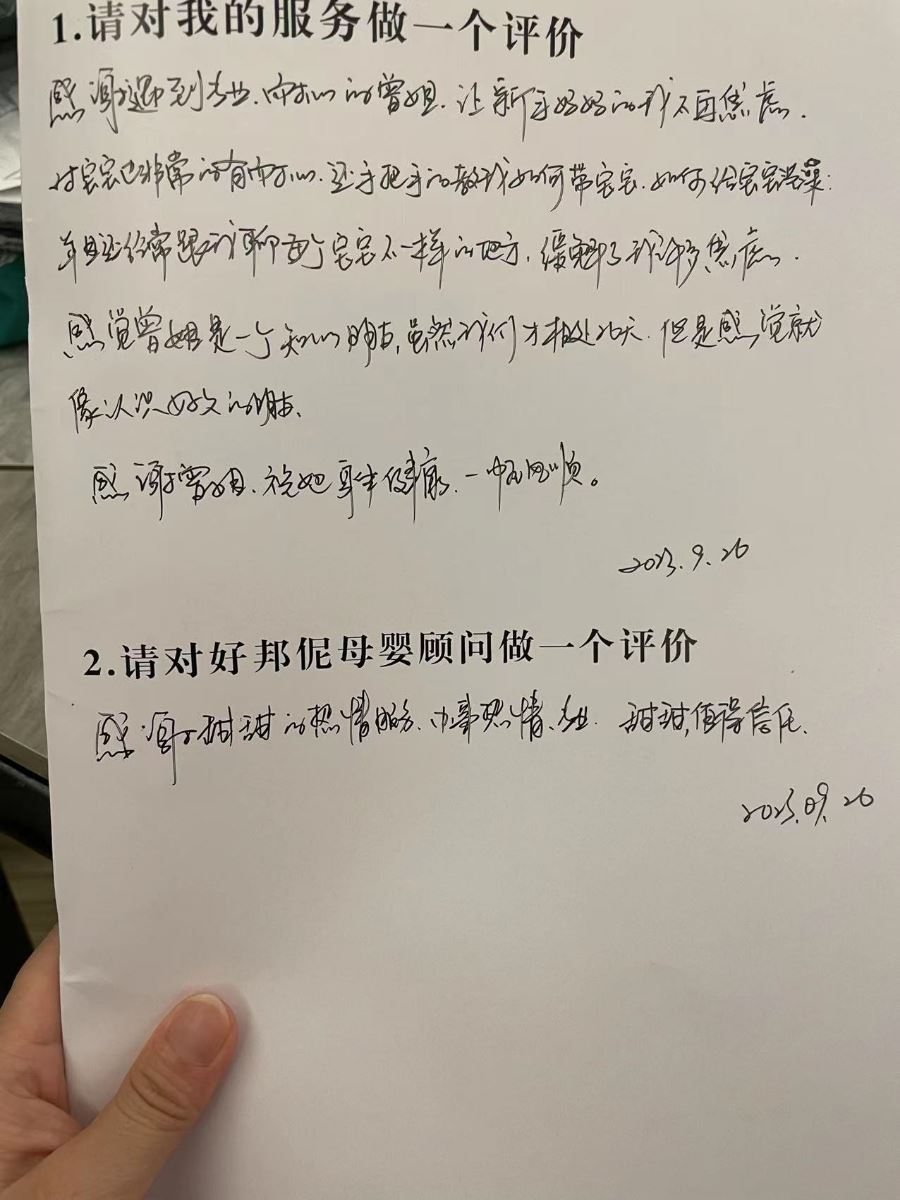 1.请对我的服务做一个评价
感谢遇到专业、有耐心的曾姐、让新手妈妈的我不再焦虑.
对宝宝也非常的有耐心、还手把手的教我如何带宝宝、如何给宝宝洗澡:
并且还经常跟我聊两个宝宝不一样的地方、缓解了我许多焦虑.
感觉曾姐是一个知心的朋友,虽然我们才相处26天.但是感觉就
像认识好久的朋友、
感谢曾姐、祝她身体健康、一帆风顺。
2023.9.26
2.请对好邦伲母婴顾问做一个评价
感谢甜甜的热情服务、做事热情、专业. 甜甜,值得信任.
2023.09.26